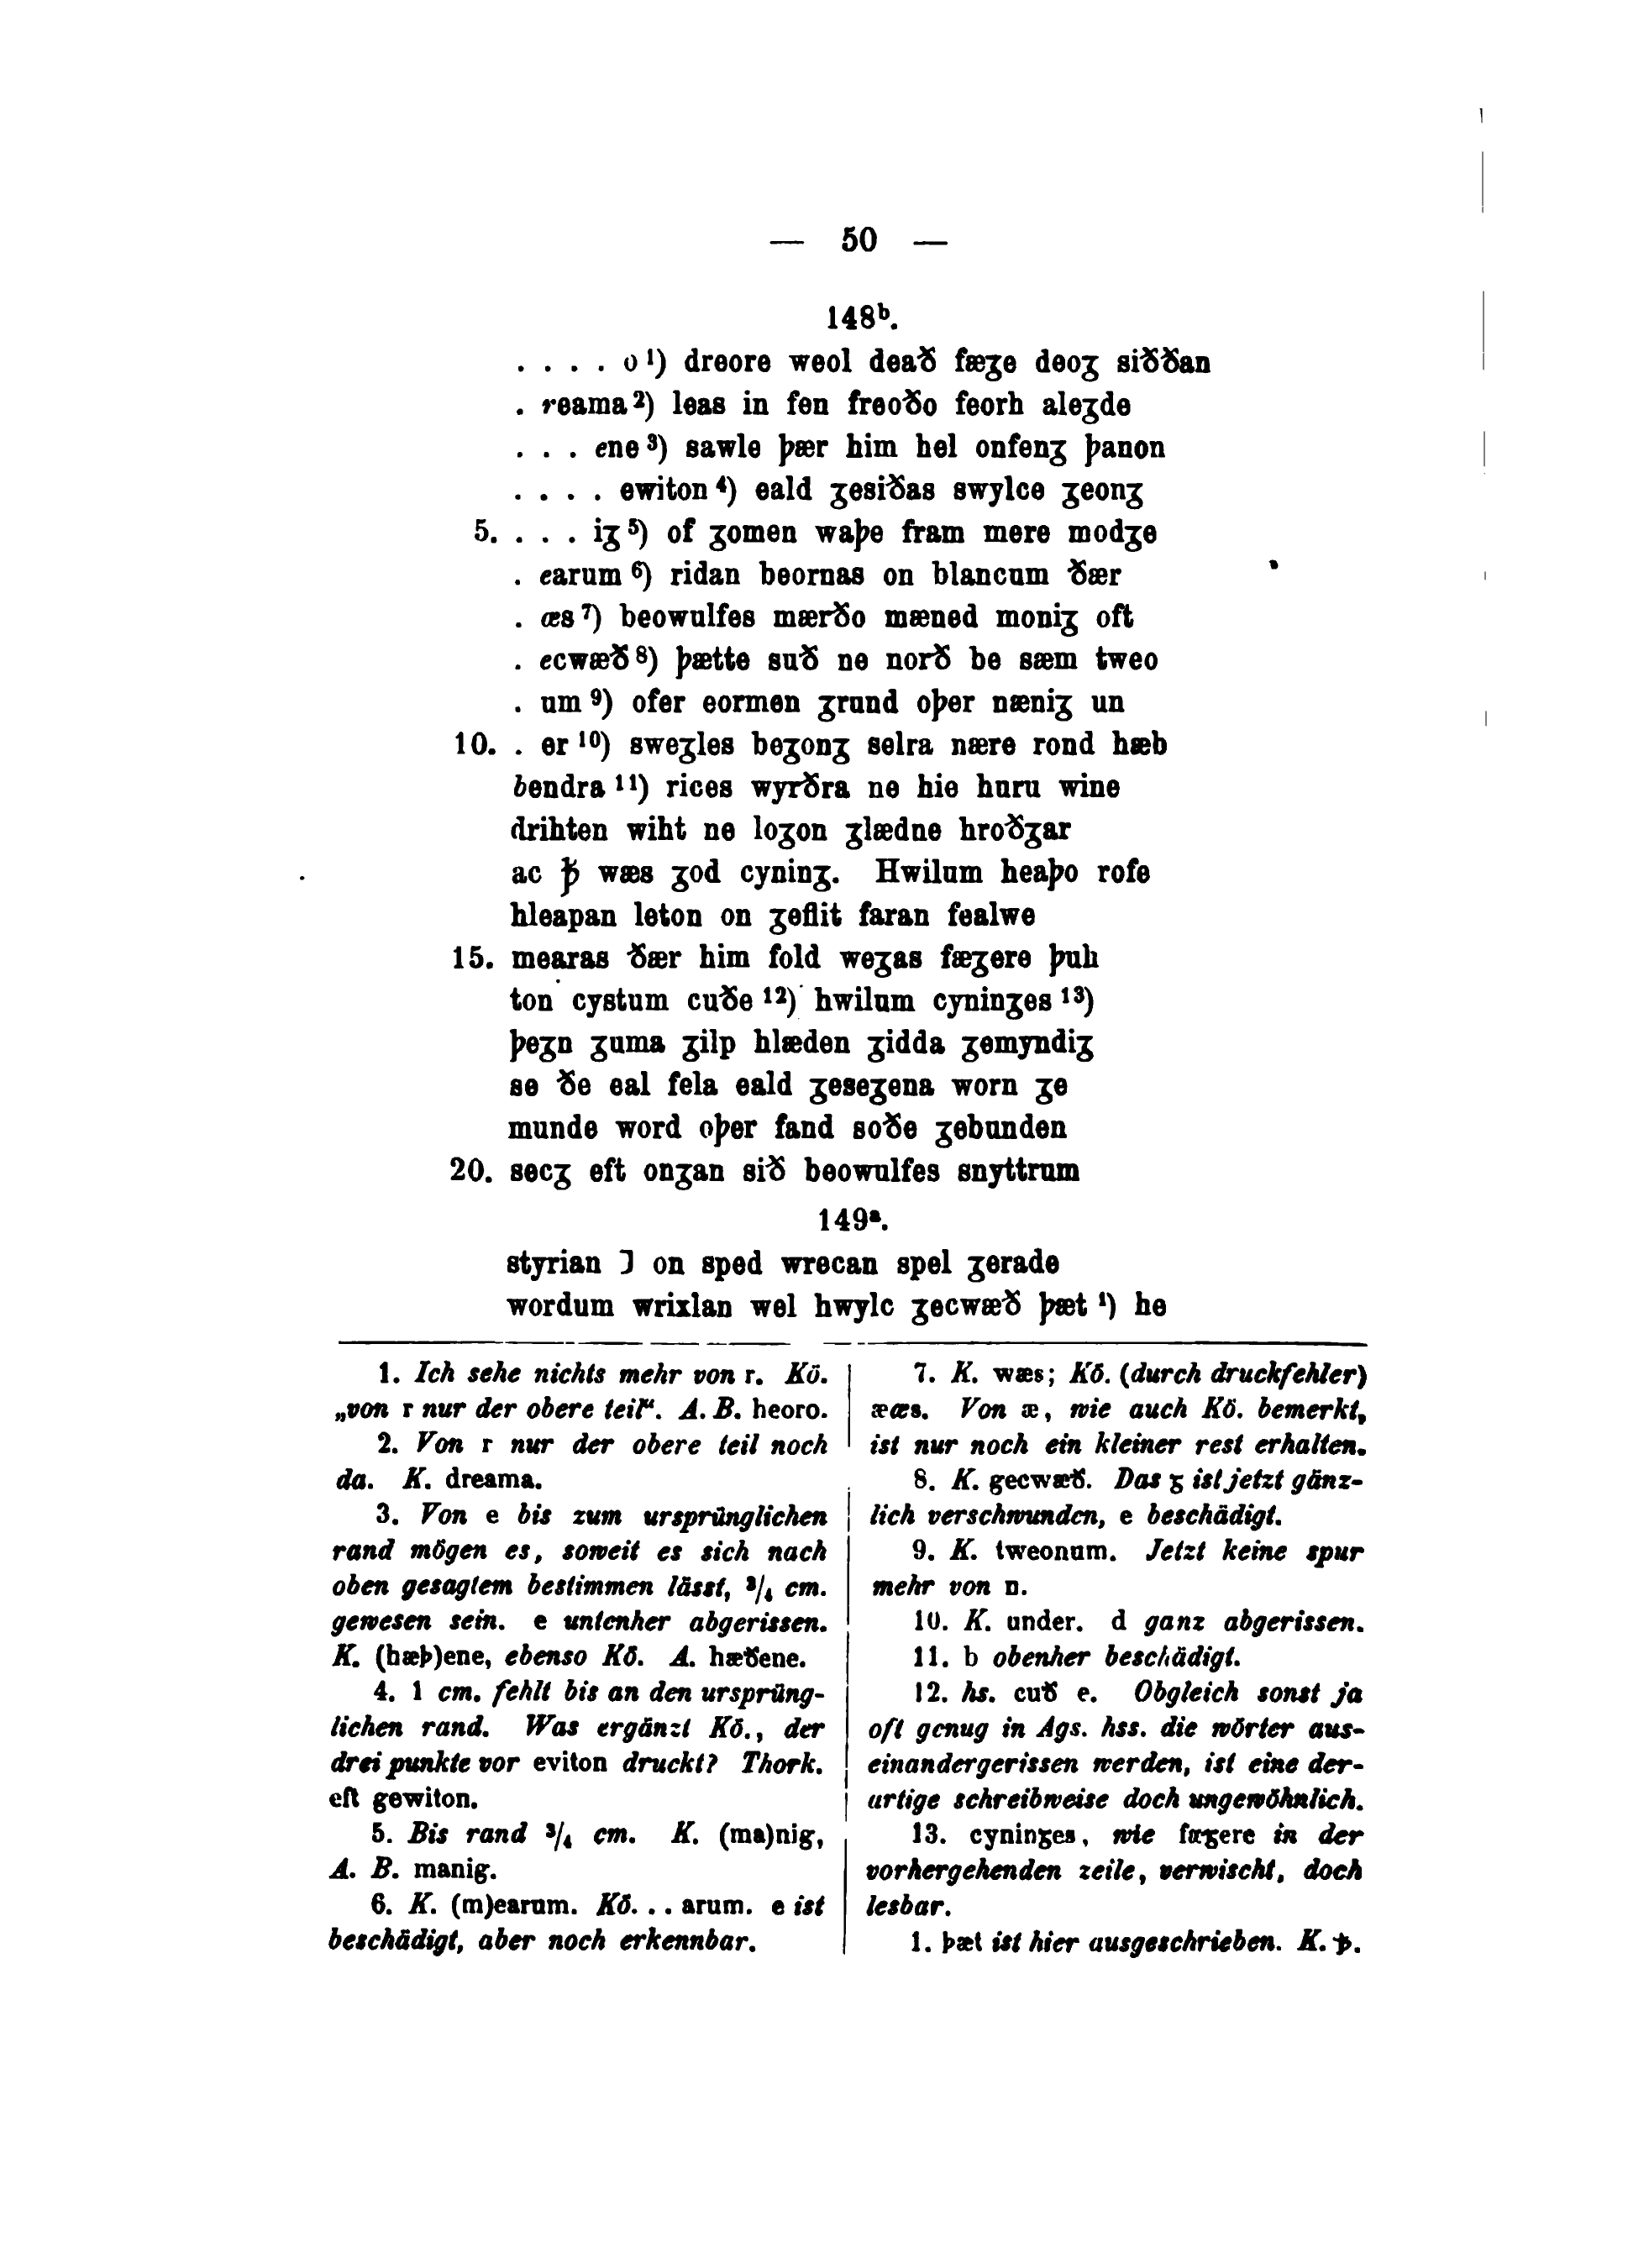 — 50 —
148ᵇ.
. . . . o ¹) dreore weol deað fæʒe deoʒ siððan
. reama ²) leas in fen freoðo feorh aleʒde
. . . ene ³) sawle þær him hel onfenʒ þanon
. . . . ewiton ⁴) eald ʒesiðas swylce ʒeonʒ
5. . . . iʒ ⁵) of ʒomen waþe fram mere modʒe
. earum ⁶) ridan beornas on blancum ðær
. æs ⁷) beowulfes mærðo mæned moniʒ oft
. ecwæð ⁸) þætte suð ne norð be sæm tweo
. um ⁹) ofer eormen ʒrund oþer næniʒ un
10. . er ¹⁰) sweʒles beʒonʒ selra nære rond hæb
bendra ¹¹) rices wyrðra ne hie huru wine
drihten wiht ne loʒon ʒlædne hroðʒar
ac ꝥ wæs ʒod cyninʒ. Hwilum heaþo rofe
hleapan leton on ʒeflit faran fealwe
15. mearas ðær him fold weʒas fæʒere þuh
ton cystum cuðe ¹²) hwilum cyninʒes ¹³)
þeʒn ʒuma ʒilp hlæden ʒidda ʒemyndiʒ
se ðe eal fela eald ʒeseʒena worn ʒe
munde word oþer fand soðe ʒebunden
20. secʒ eft onʒan sið beowulfes snyttrum
149ᵃ.
styrian ⁊ on sped wrecan spel ʒerade
wordum wrixlan wel hwylc ʒecwæð þæt ¹) he
1. Ich sehe nichts mehr von r. Kö.
„von r nur der obere teil“. A. B. heoro.
2. Von r nur der obere teil noch
da. K. dreama.
3. Von e bis zum ursprünglichen
rand mögen es, soweit es sich nach
oben gesagtem bestimmen lässt, ³/₄ cm.
gewesen sein. e untenher abgerissen.
K. (hæþ)ene, ebenso Kö. A. hæðene.
4. 1 cm. fehlt bis an den ursprüng-
lichen rand. Was ergänzt Kö., der
drei punkte vor eviton druckt? Thork.
eft gewiton.
5. Bis rand ³/₄ cm. K. (ma)nig,
A. B. manig.
6. K. (m)earum. Kö. . . arum. e ist
beschädigt, aber noch erkennbar.
7. K. wæs; Kö. (durch druckfehler)
ææs. Von æ, wie auch Kö. bemerkt,
ist nur noch ein kleiner rest erhalten.
8. K. gecwæð. Das ʒ ist jetzt gänz-
lich verschwunden, e beschädigt.
9. K. tweonum. Jetzt keine spur
mehr von n.
10. K. under. d ganz abgerissen.
11. b obenher beschädigt.
12. hs. cuð e. Obgleich sonst ja
oft genug in Ags. hss. die wörter aus-
einandergerissen werden, ist eine der-
artige schreibweise doch ungewöhnlich.
13. cyninʒes, wie fæʒere in der
vorhergehenden zeile, verwischt, doch
lesbar.
1. þæt ist hier ausgeschrieben. K. ꝥ.